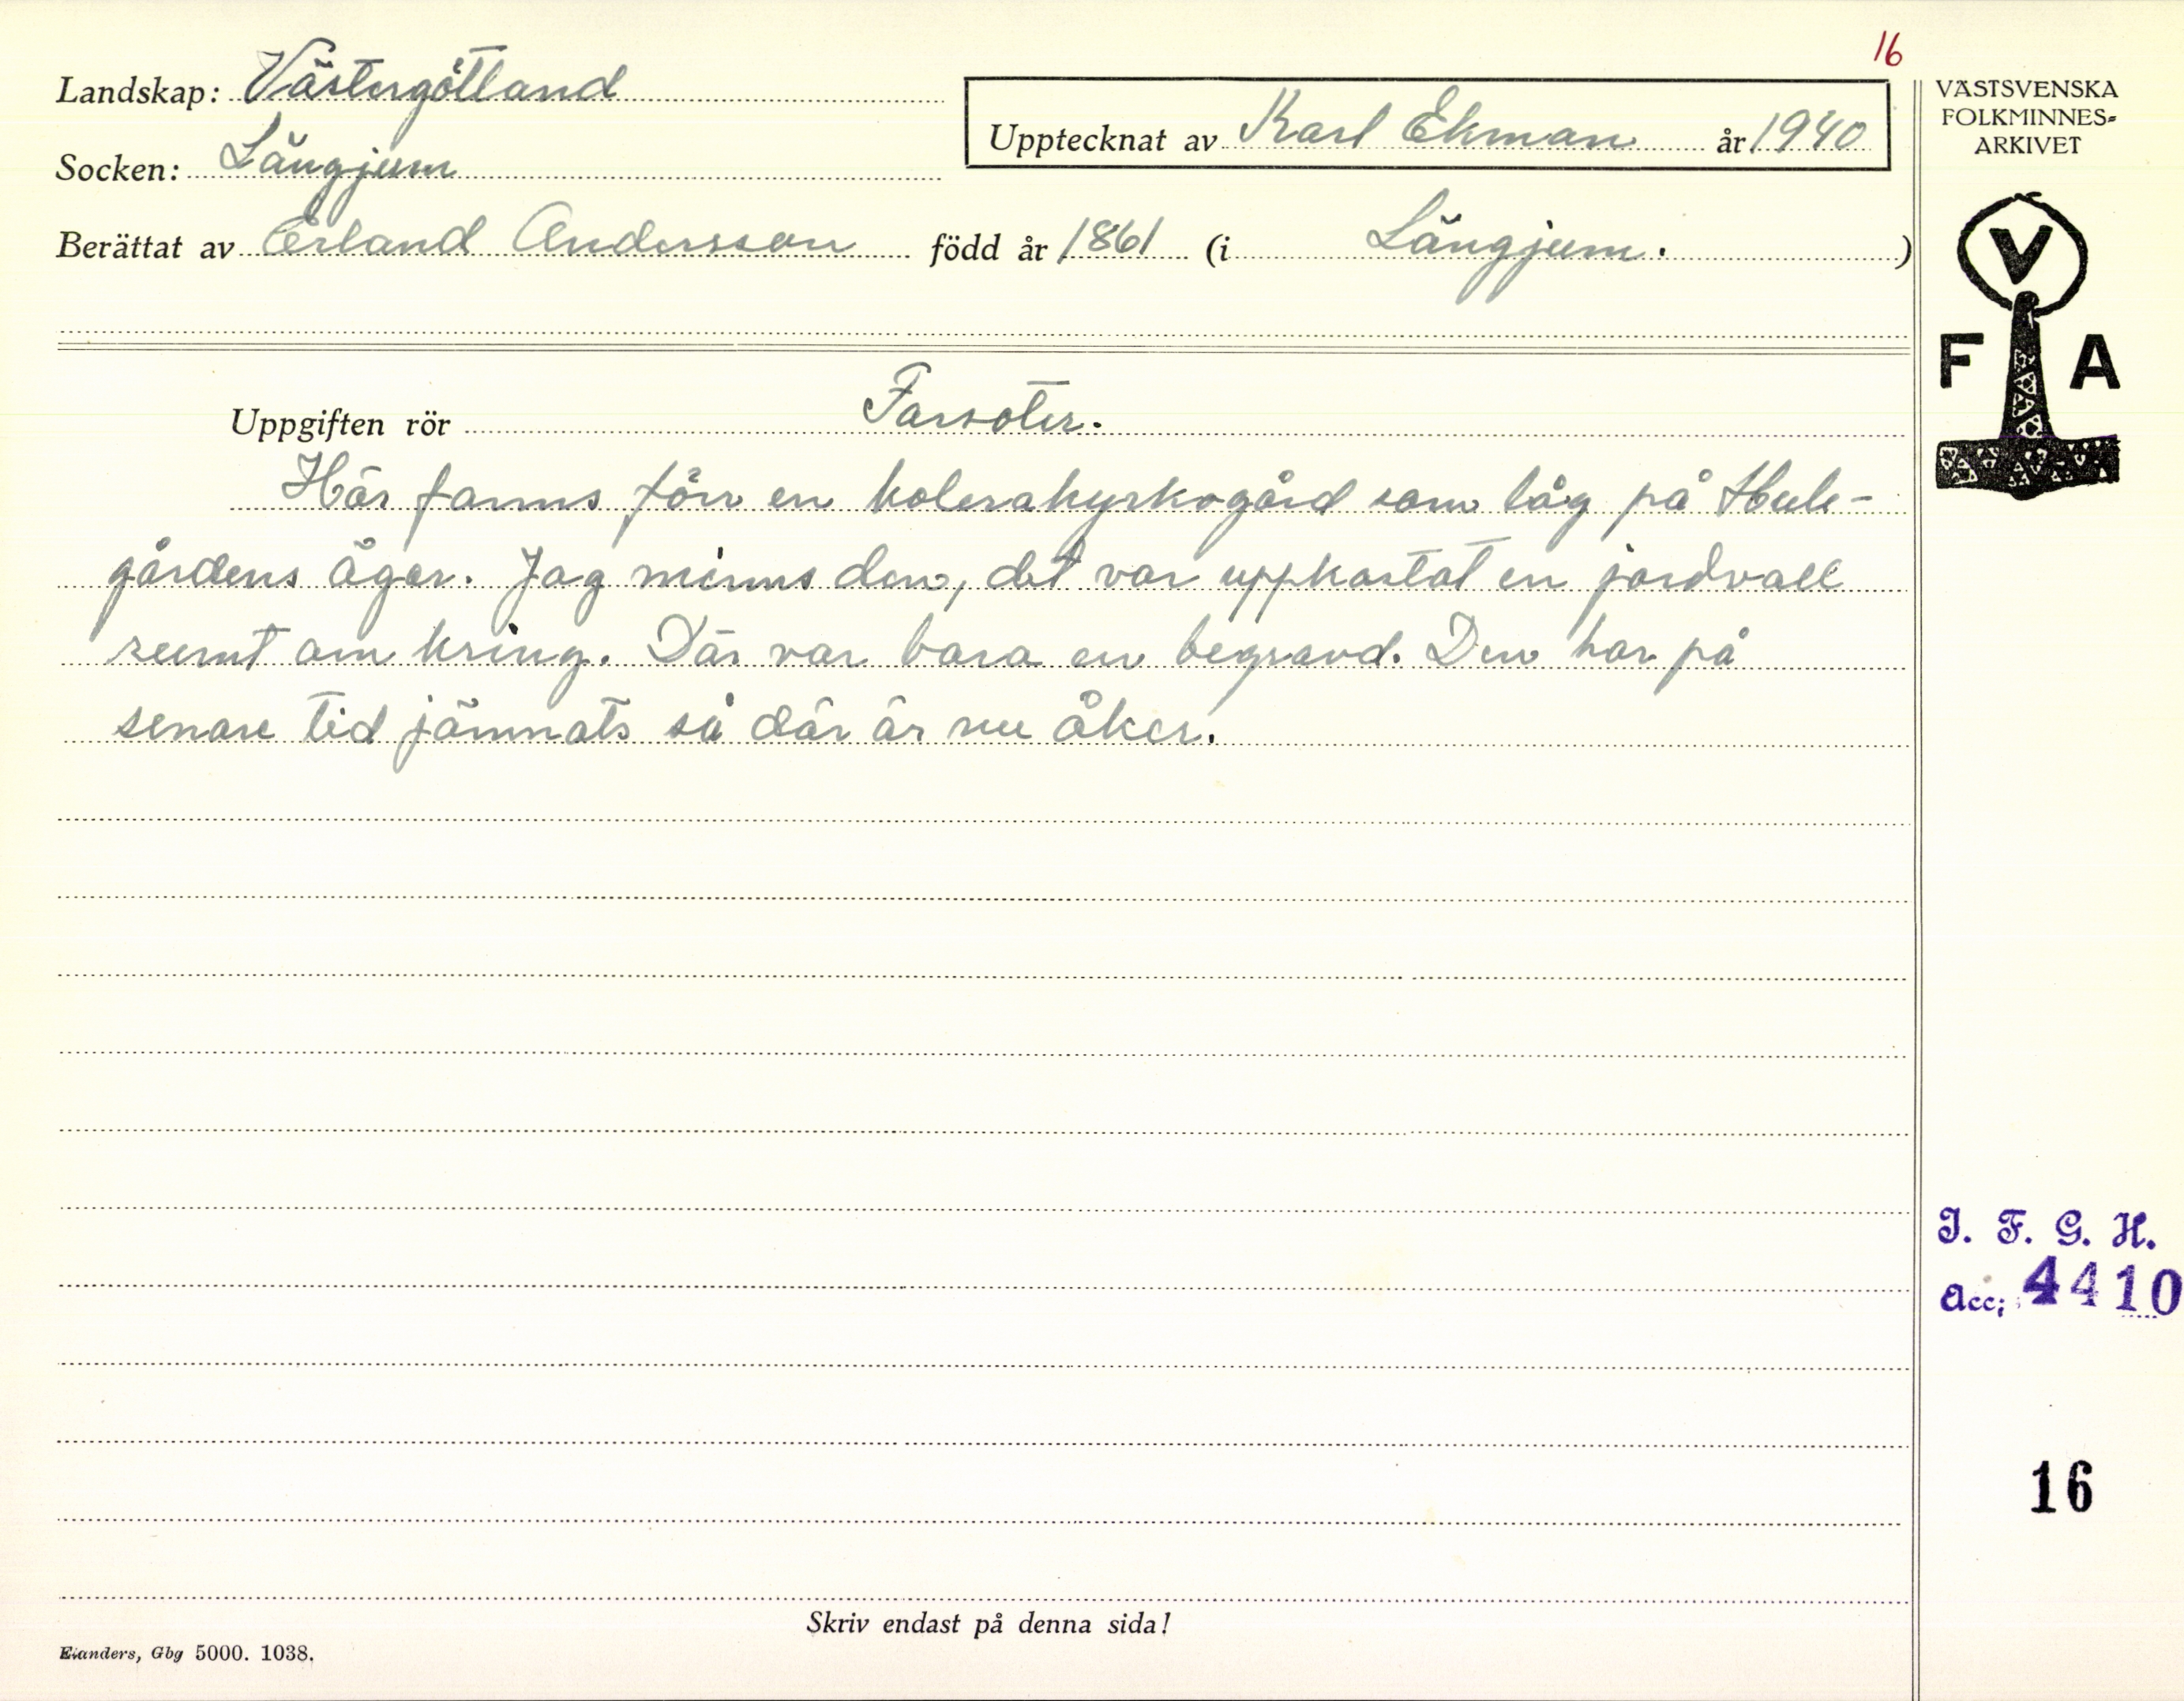 16
Landskap: Västergötland
Upptecknat av Karl Ekman år 1940
Socken: Längjum
Berättat av Erland Andersson född år 1861 (i Längjum. )
VÄSTSVENSKA
FOLKMINNES=
ARKIVET
V
F A
Uppgiften rör Farsoter.
Här fanns förr en kolerakyrkogård som låg på Hule-
gårdens ägor. Jag minns den, det var uppkastat en jordvall
runt om kring. Där var bara en begravd. Den har på
senare tid jämnats så där är nu åker.
I. F. G. H.
Acc; 4410
16
Skriv endast på denna sida!
Elanders, Gbg 5000. 1038.